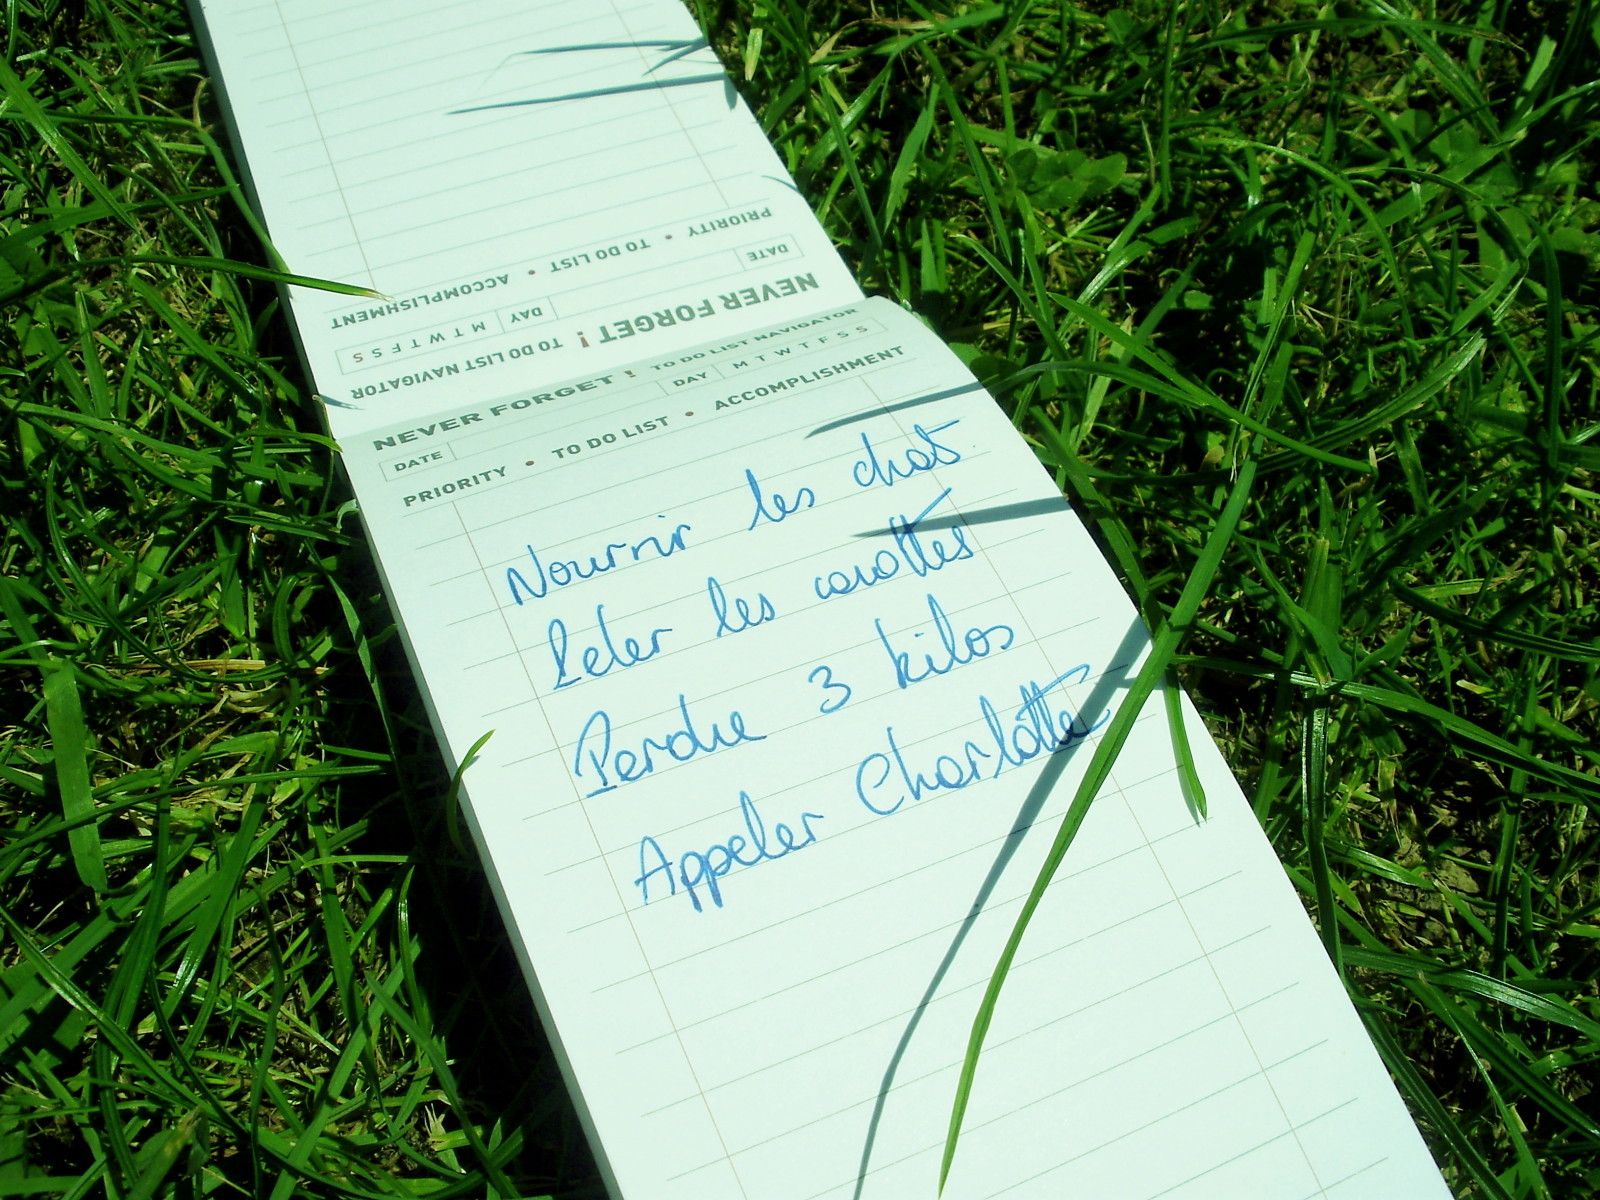 PRIORITY • TO DO LIST • ACCOMPLISHMENT
DATE DAY M T W T F S S
NEVER FORGET ! TO DO LIST NAVIGATOR
NEVER FORGET ! TO DO LIST NAVIGATOR
DATE DAY M T W T F S S
PRIORITY • TO DO LIST • ACCOMPLISHMENT
Nourrir les chats
Peler les carottes
Perdre 3 kilos
Appeler Charlotte